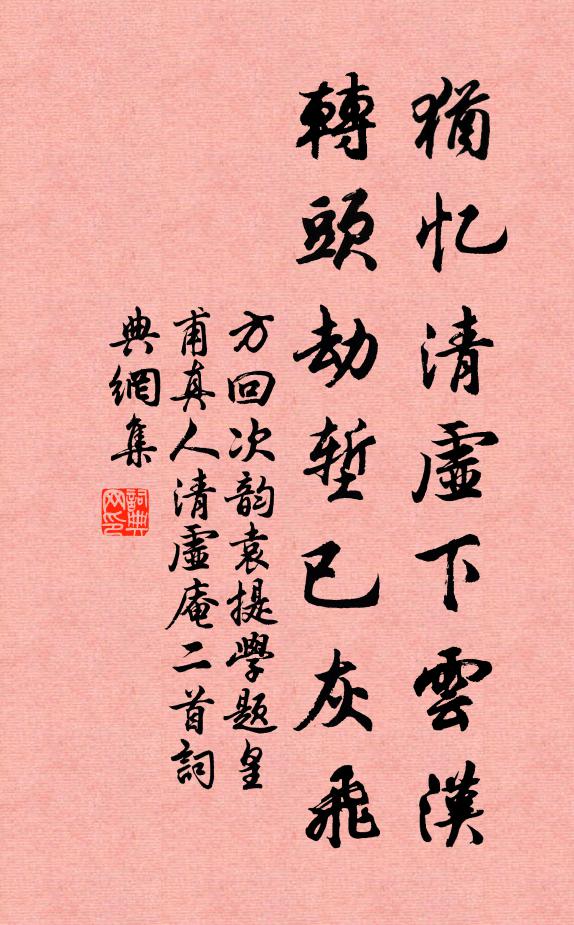 猶忆清虛下雲漢
轉頭劫塹已灰飛
方回次韵袁提學題皇
甫真人清虛庵二首詞
典網集
詞典
网印